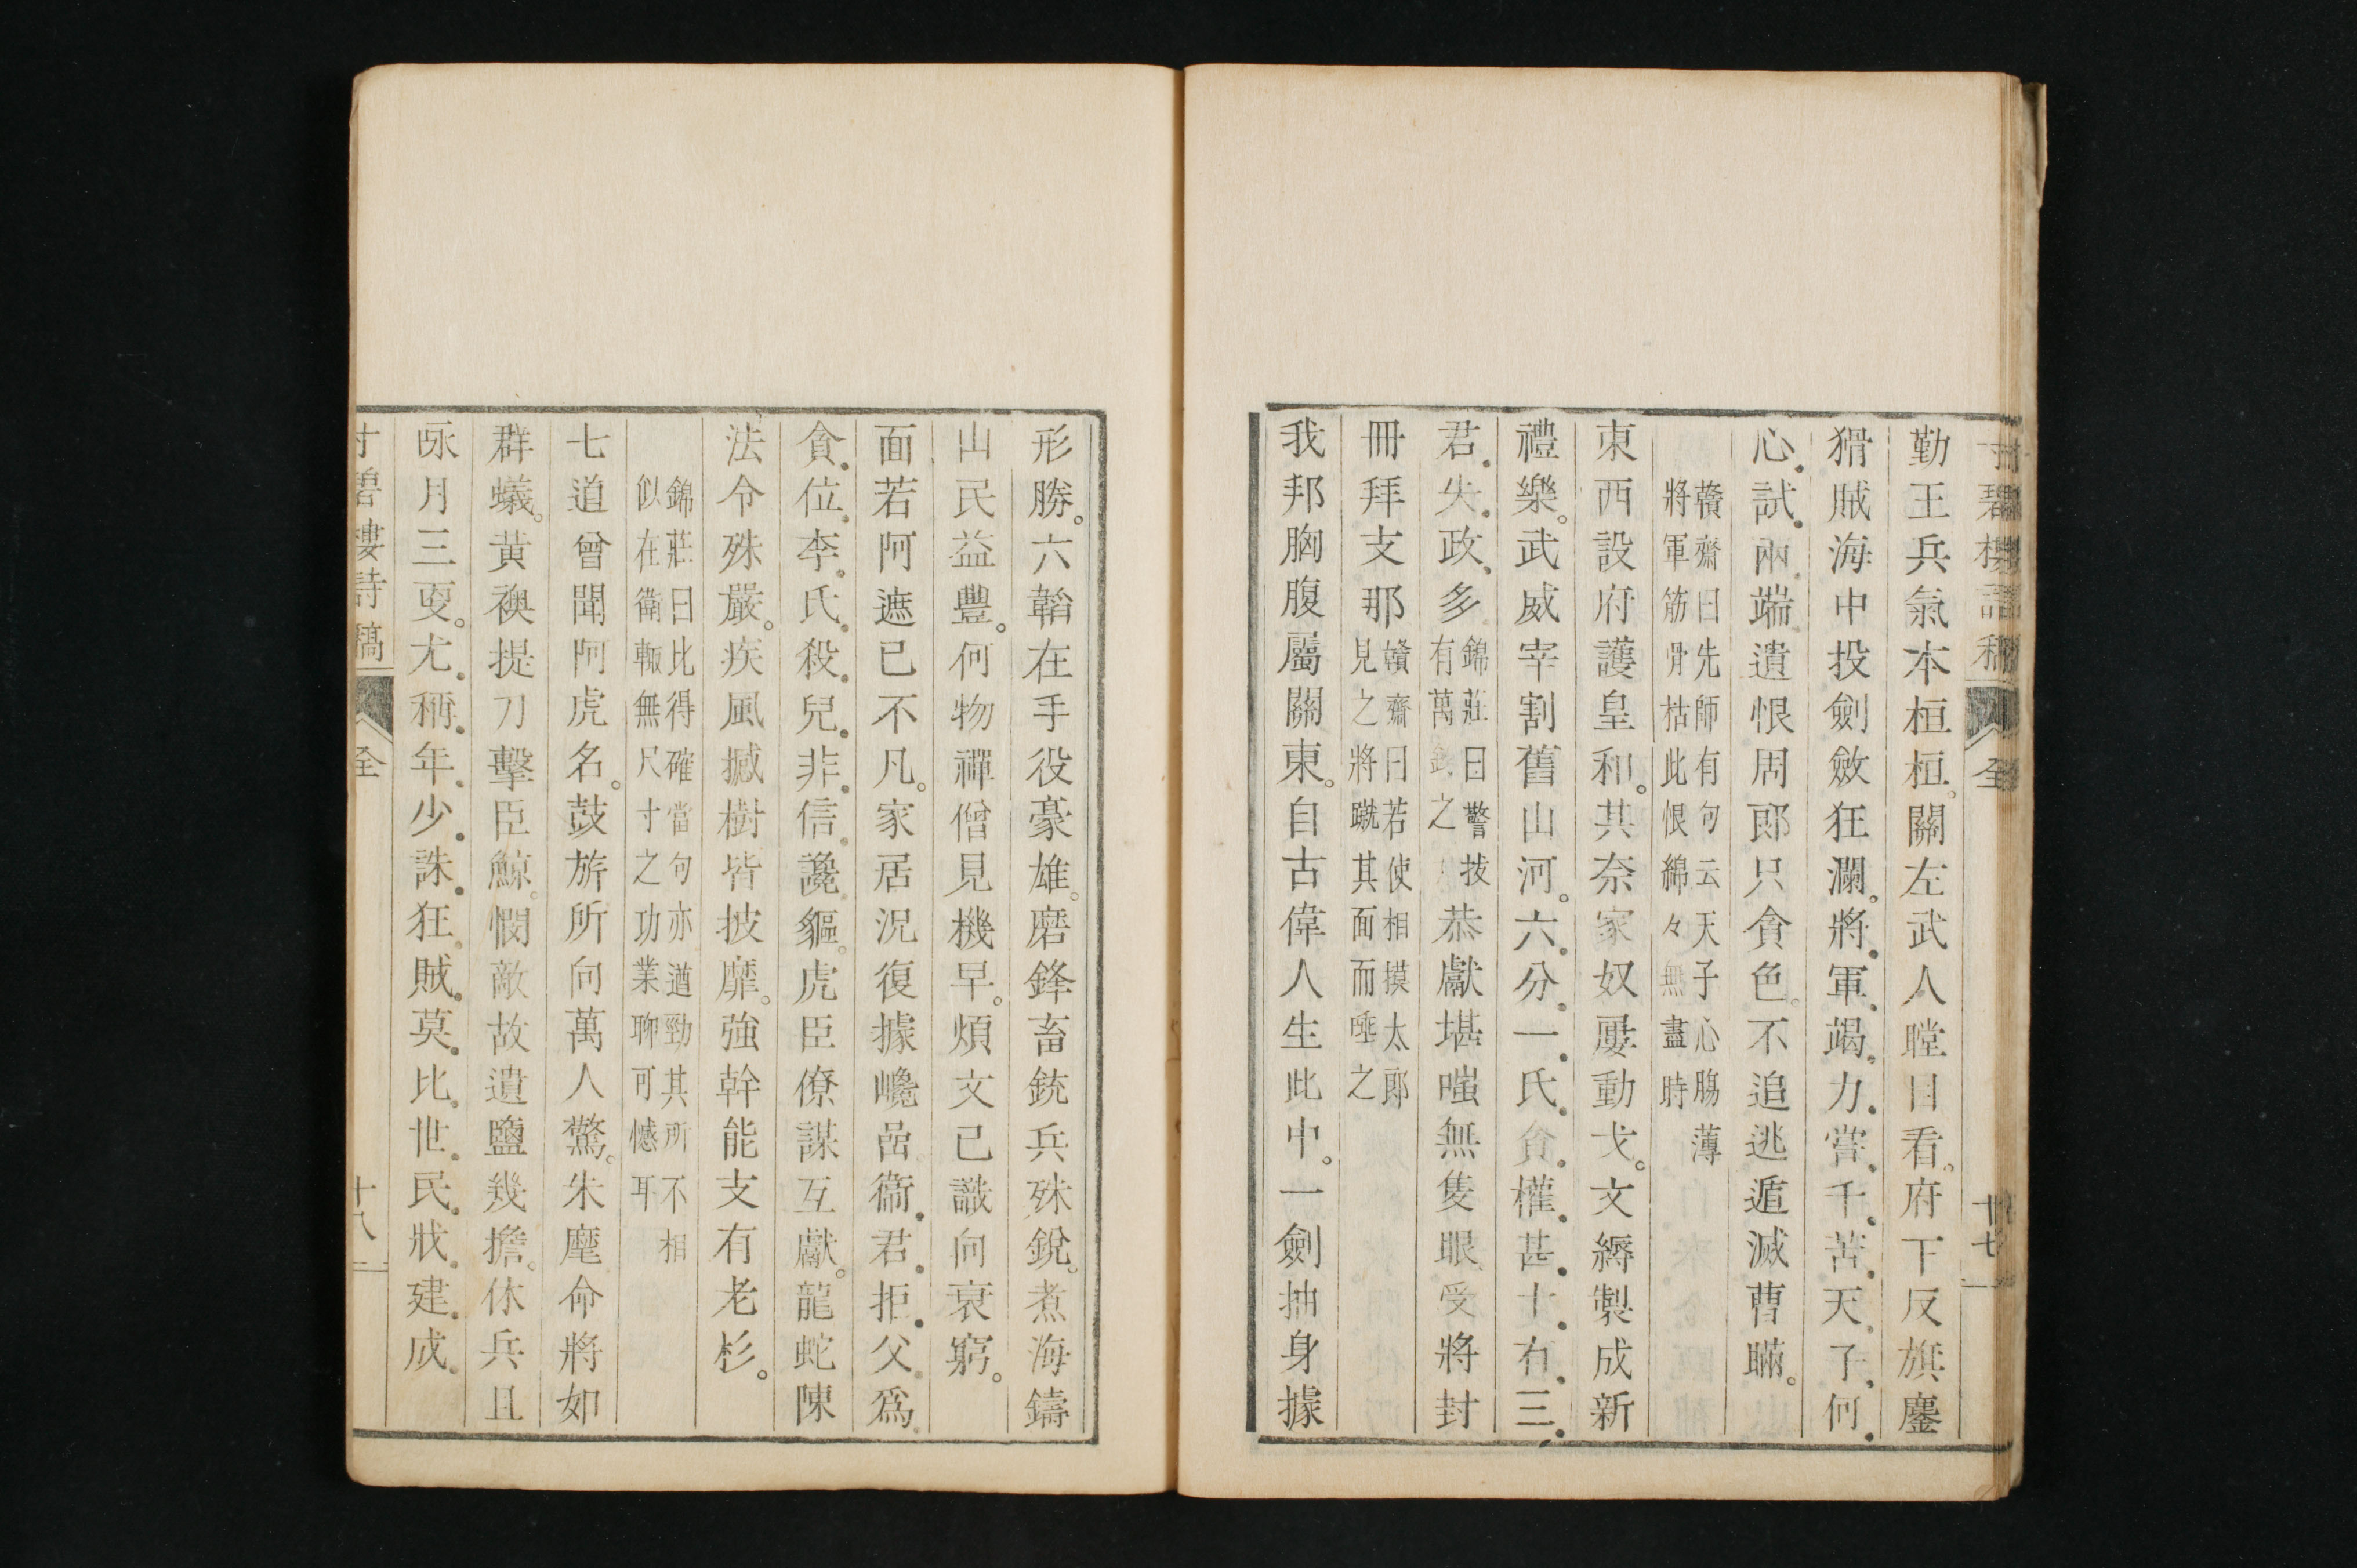 寸碧樓詩稿 全 十七
勤王兵氣本桓桓。關左武人瞠目看。府下反旗鏖
猾賊海中投劍斂狂瀾。將軍竭力嘗千苦天子何
心試兩端遺恨周郎只貪色。不追逃遁滅曹瞞。
贛齋曰先師有句云天子心膓薄
將軍筋骨枯此恨綿々無盡時
東西設府護皇和。其奈家奴屢動戈。文縟製成新
禮樂。武威宰割舊山河。六分一氏貪權甚十有三
君失政多
錦莊曰警拔
有萬之
恭獻堪嗤無隻眼受將封
冊拜支那
贛齋曰若使相摸太郎
見之將蹴其面而唾之
我邦胸腹屬關東。自古偉人生此中。一劍抽身據
形勝。六韜在手役豪雄。磨鋒畜銃兵殊銳。煮海鑄
山民益豐。何物禪僧見機早。煩文已識向衰窮。
面若阿遮已不凡。家居況復據巉嵒衞君拒父爲
貪位李氏殺兒非信讒貙虎臣僚謀互獻。龍蛇陳
法令殊嚴。疾風撼樹皆披靡。強幹能支有老杉。
錦莊曰比得確當句亦遒勁其所不相
似在衞輙無尺寸之功業聊可憾耳
七道曾聞阿虎名。鼓旂所向萬人驚。朱麾命將如
群蟻。黃襖提刀擊臣鯨。憫敵故遺鹽幾擔。休兵且
咏月三更。尤稱年少誅狂賊莫比世民狀建成
寸碧樓詩稿 全 十八